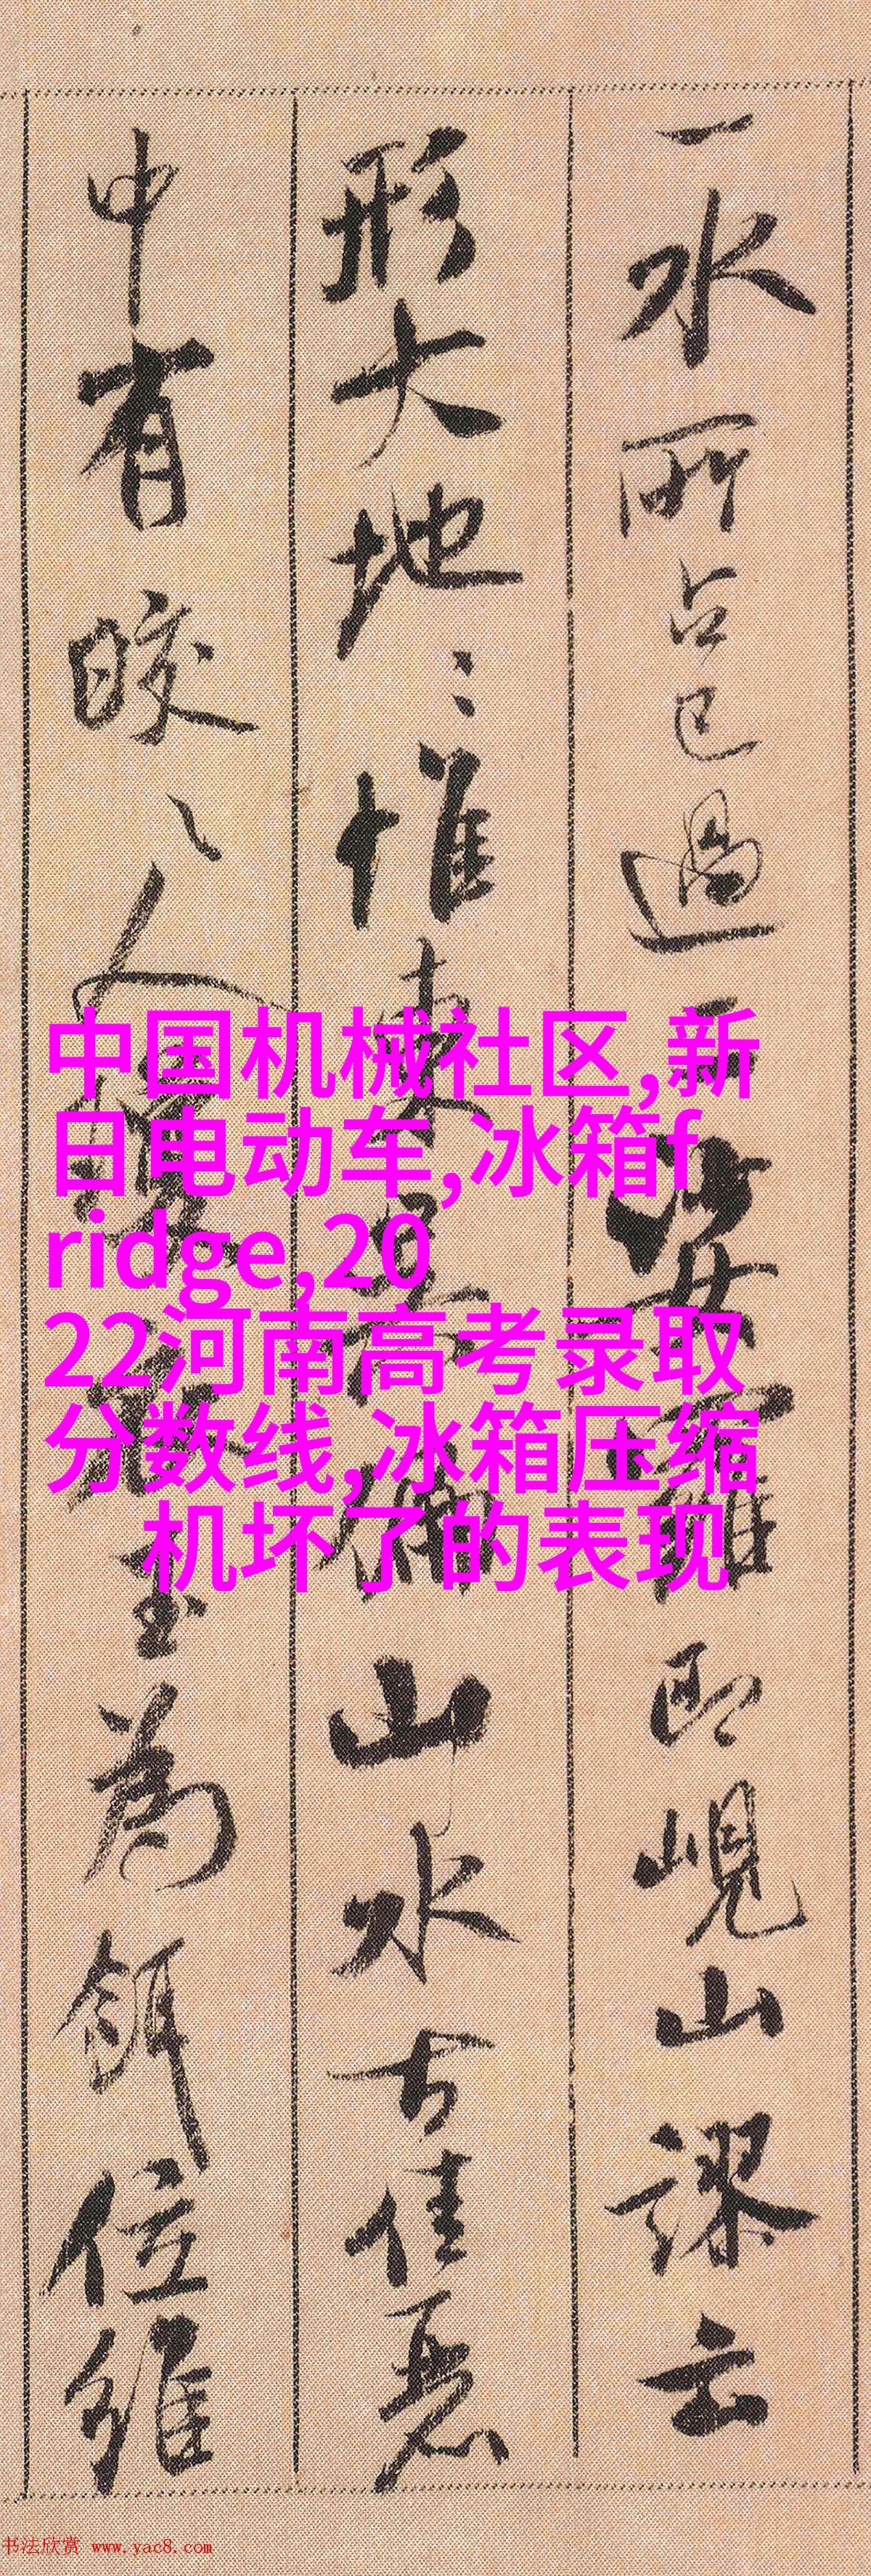 一水所占已過二安羅即峴山謬云
形大地地惟東吳偏山水古佳麗
中有皎皎人瓊衣玉為餌位維
中国机械社区,新
日电动车,冰箱f
ridge,20
22河南高考录取
分数线,冰箱压缩
机坏了的表现
书法欣赏 www.yac8.com